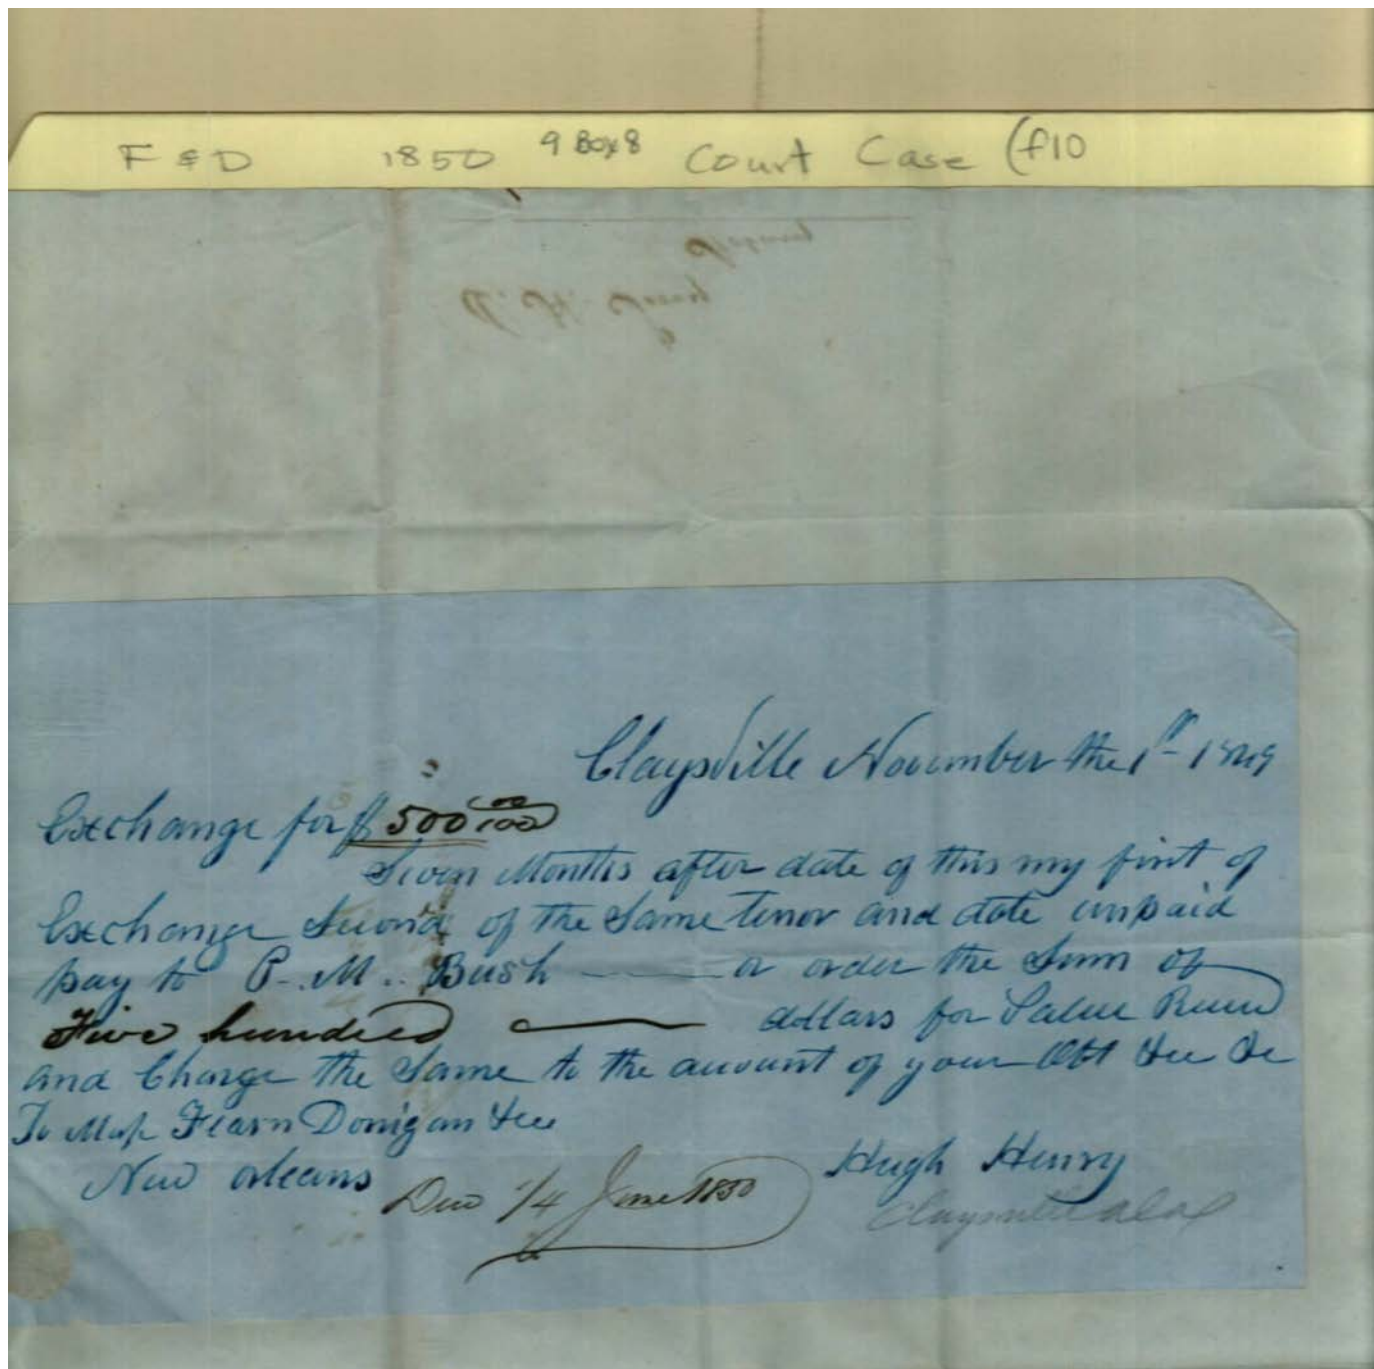 F & D 1850 9 Box 8 Court Case (f10
Claysville November the 1st 1849
Exchange for $ 500 00/100
Seven Months after date of this my first of
Exchange Second of the Same tenor and date unpaid
pay to P. M. Bush or order the Sum of
Five hundred dollars for Value
and Charge the Same to the account of your Obt
To Fearn Donigan
New orleans
Hugh Henry
Due 1/4 June 1850
Claysville Ala